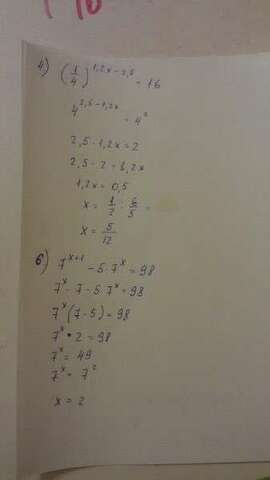 4) (1/4)^{1,2x-2,5} = 16
4^{2,5-1,2x} = 4^2
2,5-1,2x=2
2,5-2=1,2x
1,2x=0,5
x = 1/2 : 6/5 =
x = 5/12
6) 7^{x+1} - 5·7^x = 98
7^x · 7 - 5·7^x = 98
7^x (7-5) = 98
7^x · 2 = 98
7^x = 49
7^x = 7^2
x = 2